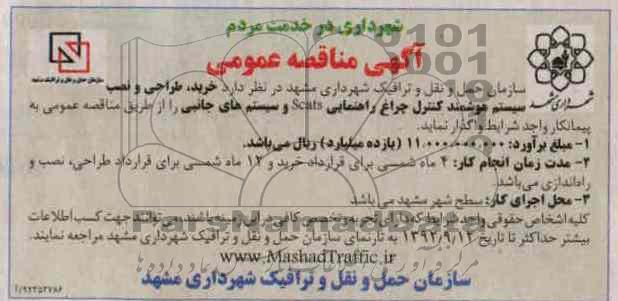 شهرداری در خدمت مردم
آگهی مناقصه عمومی
سازمان حمل و نقل و ترافیک شهرداری مشهد در نظر دارد خرید، طراحی و نصب
سیستم هوشمند کنترل چراغ راهنمایی Scats و سیستم های جانبی را از طریق مناقصه عمومی به
پیمانکار واجد شرایط واگذار نماید.
۱- مبلغ برآورد: ۱۱،۰۰۰،۰۰۰،۰۰۰ (یازده میلیارد) ریال می‌باشد.
۲- مدت زمان انجام کار: ۴ ماه شمسی برای قرارداد خرید و ۱۲ ماه شمسی برای قرارداد طراحی، نصب و
راه‌اندازی می‌باشد.
۳- محل اجرای کار: سطح شهر مشهد می باشد
کلیه اشخاص حقوقی واجد شرایط که دارای تجربه و تخصص کافی در این زمینه باشند می توانند جهت کسب اطلاعات
بیشتر حداکثر تا تاریخ ۱۳۹۲/۹/۱۲ به تارنمای سازمان حمل و نقل و ترافیک شهرداری مشهد مراجعه نمایند.
www.MashadTraffic.ir
سازمان حمل و نقل و ترافیک شهرداری مشهد
شهرداری مشهد
سازمان حمل و نقل و ترافیک مشهد
ParsNamadData